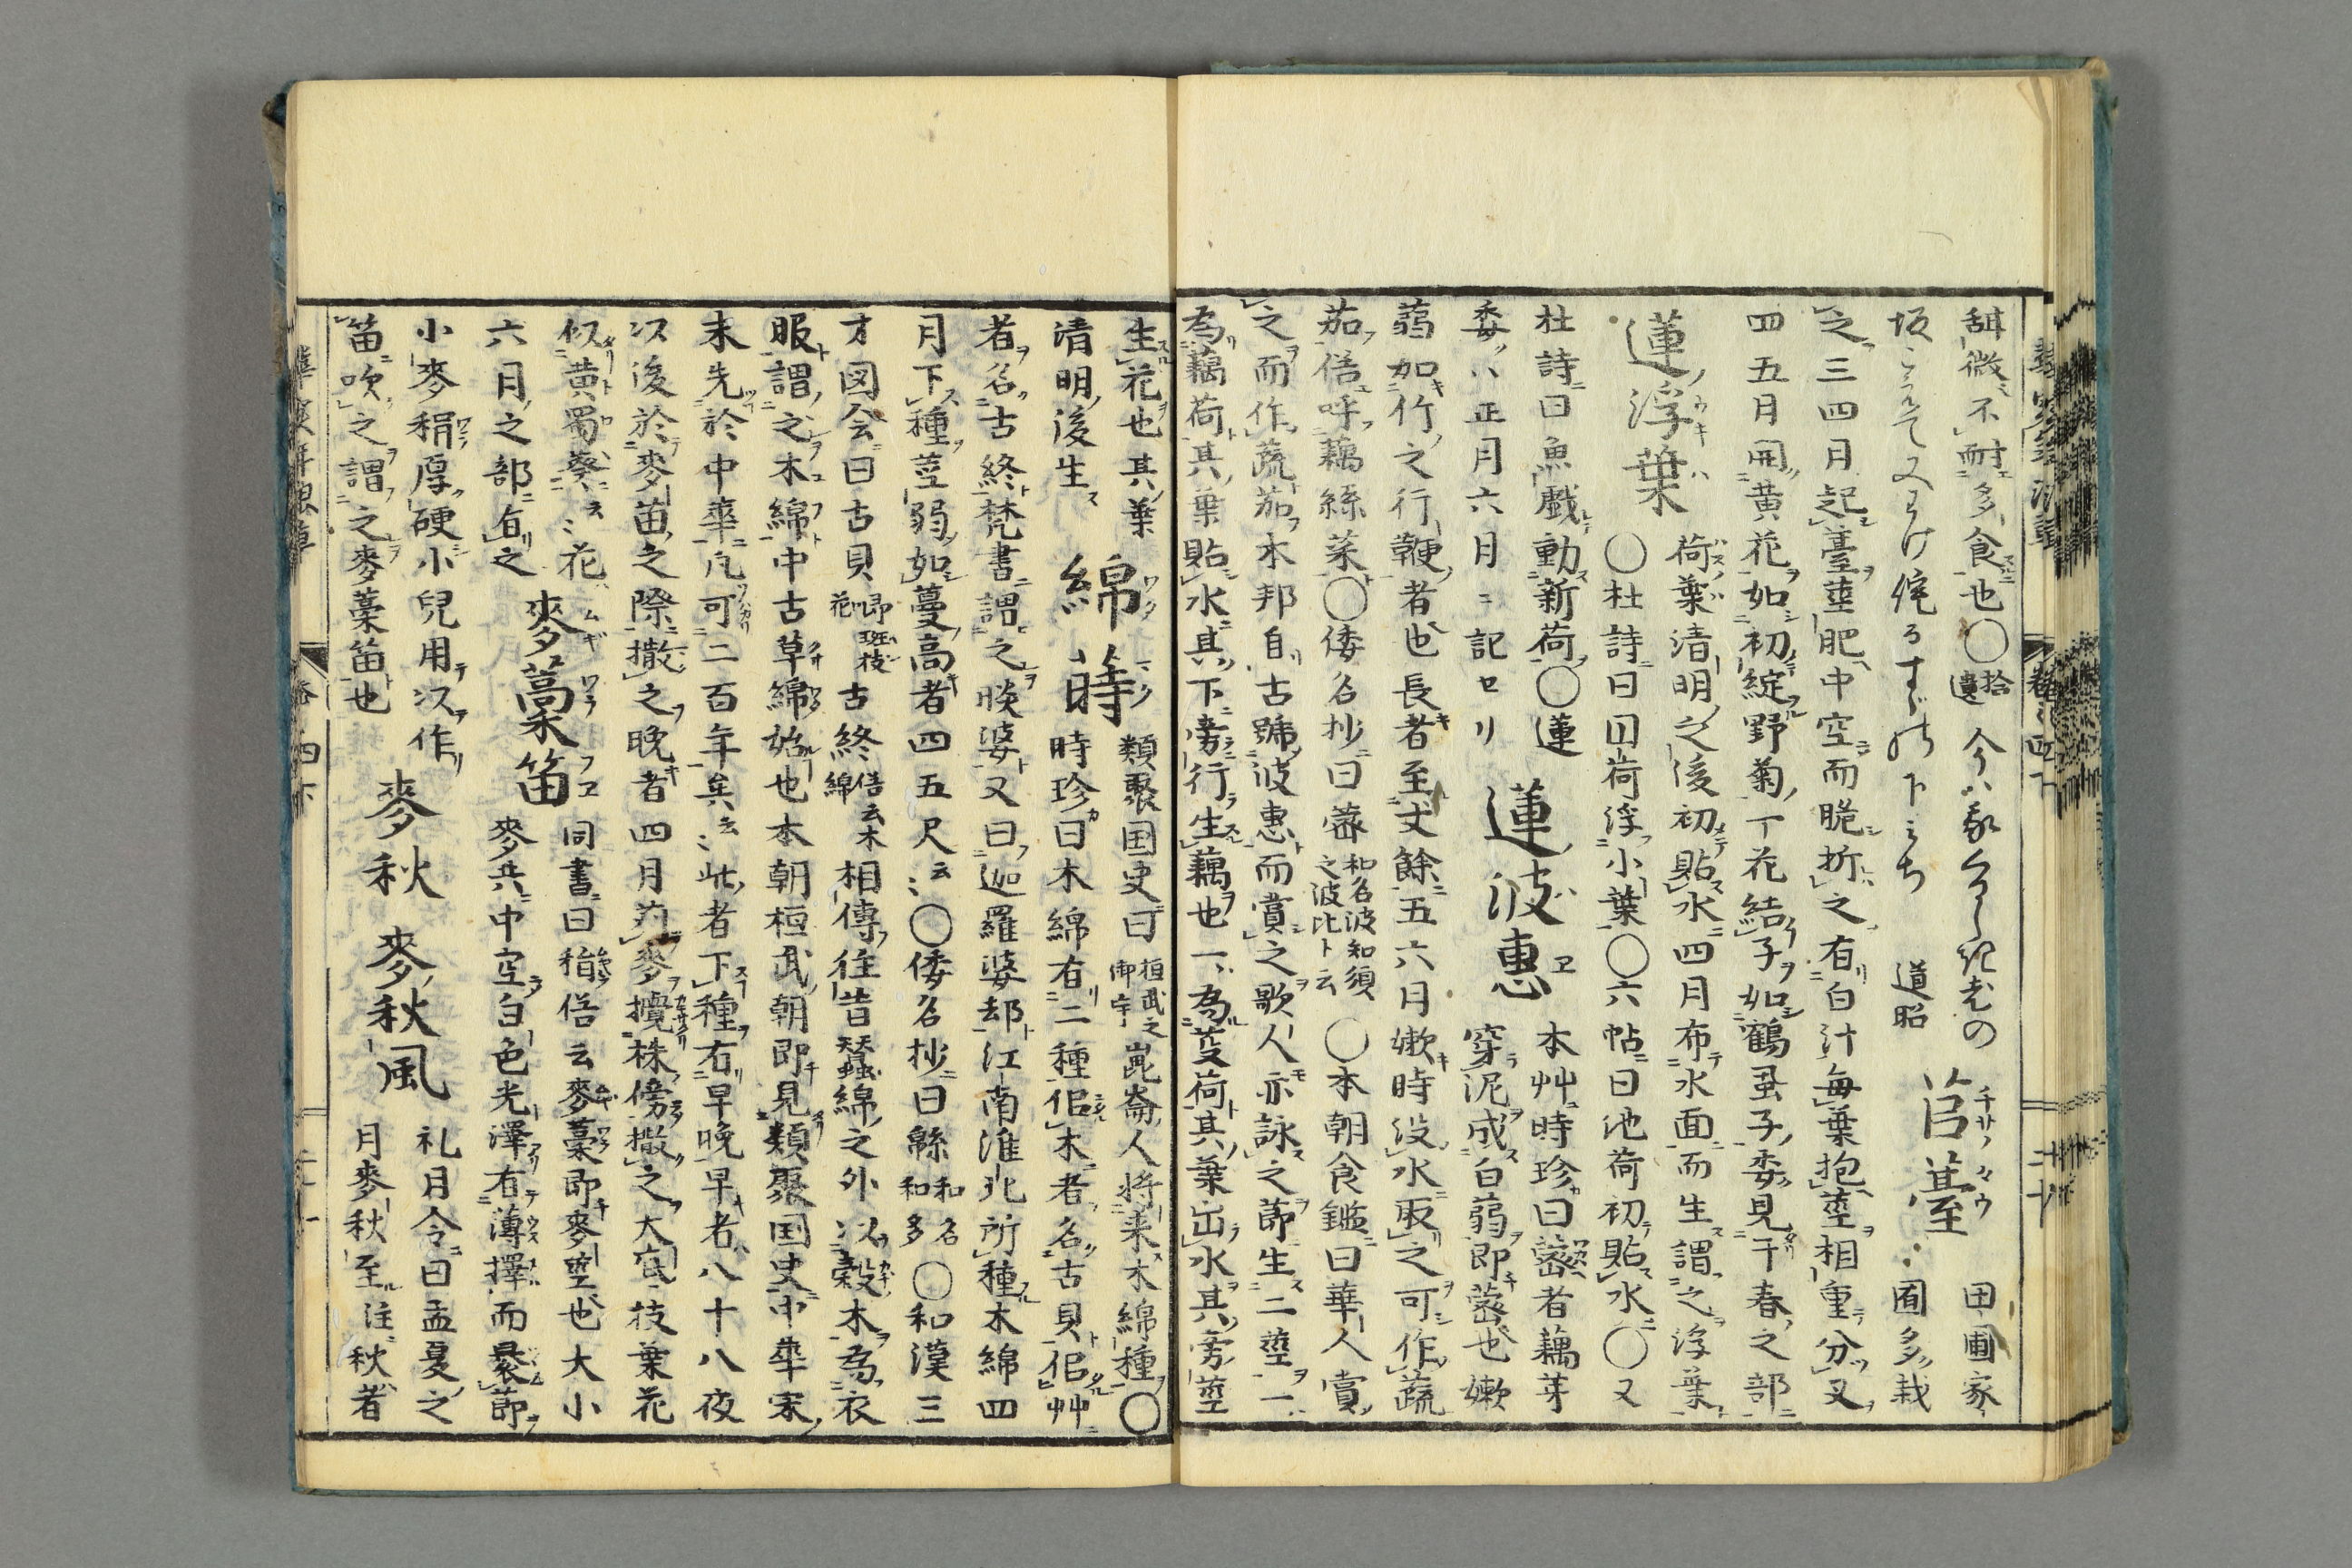 甜微不耐多食也〇拾遺
道昭 萵薹 チサノタウ 田圃家
圃多栽
之三四月起薹莖肥中空而脆折之有白汁毎葉抱莖相重分叉
四五月開黄花如初綻野菊一花結子如鶴虱子委見于春之部
蓮浮葉 ノウキハ 荷葉清明之後初貼水四月布水面而生謂之浮葉
〇杜詩曰囙荷浮小葉〇六帖曰池荷初貼水〇又
杜詩曰魚戯動新荷〇蓮
委ハ正月六月ニ記セリ 蓮波惠 本艸時珍曰蔤者藕芽
穿泥成白蒻即蔤也嫩
蒻如竹之行鞭者也長者至丈餘五六月嫩時没水取之可作蔬
茄俗呼藕絲菜〇倭名抄曰蔤和名波知須之波比ト云〇本朝食鑑曰華人賞
之而作蔬茄本邦自古號波惠而賞之歌人亦詠之莭生二莖一
為藕荷其葉貼水其下旁行生藕也一為芰荷其葉出水其旁莖
生花也其葉
清明後生 綿蒔 ワタマク 類聚国史曰桓武之御宇崑崙人将来木綿種〇
時珍曰木綿有二種佀木者名古貝佀艸
者名古終梵書謂之睒婆又曰迦羅婆却江南淮北所種木綿四
月下種莖弱如蔓高者四五尺云〻〇倭名抄曰緜和名和多〇和漢三
才図会曰古貝即斑枝花古終俗云木綿相傳往昔蠶綿之外以穀木為衣
服謂之木綿中古草綿始也本朝桓武朝即見類聚国史中華宋
末先於中華凡可二百年矣云〻此者下種右早晩早者八十八夜
以後於麥苗之際撒之晩者四月苅麥攪株傍撒之大㡳枝葉花
似黄蜀葵云〻花
六月之部有之 麥藁笛 ムギワラフエ 同書曰稭俗云麥藁即麥莖也大小
麥共中空白色光澤有薄擇而褁莭
小麥稍厚硬小兒用次作
笛吹之謂之麥藁笛也 麥秋 麥秋風 礼月令曰孟夏之
月麥秋至注秋者